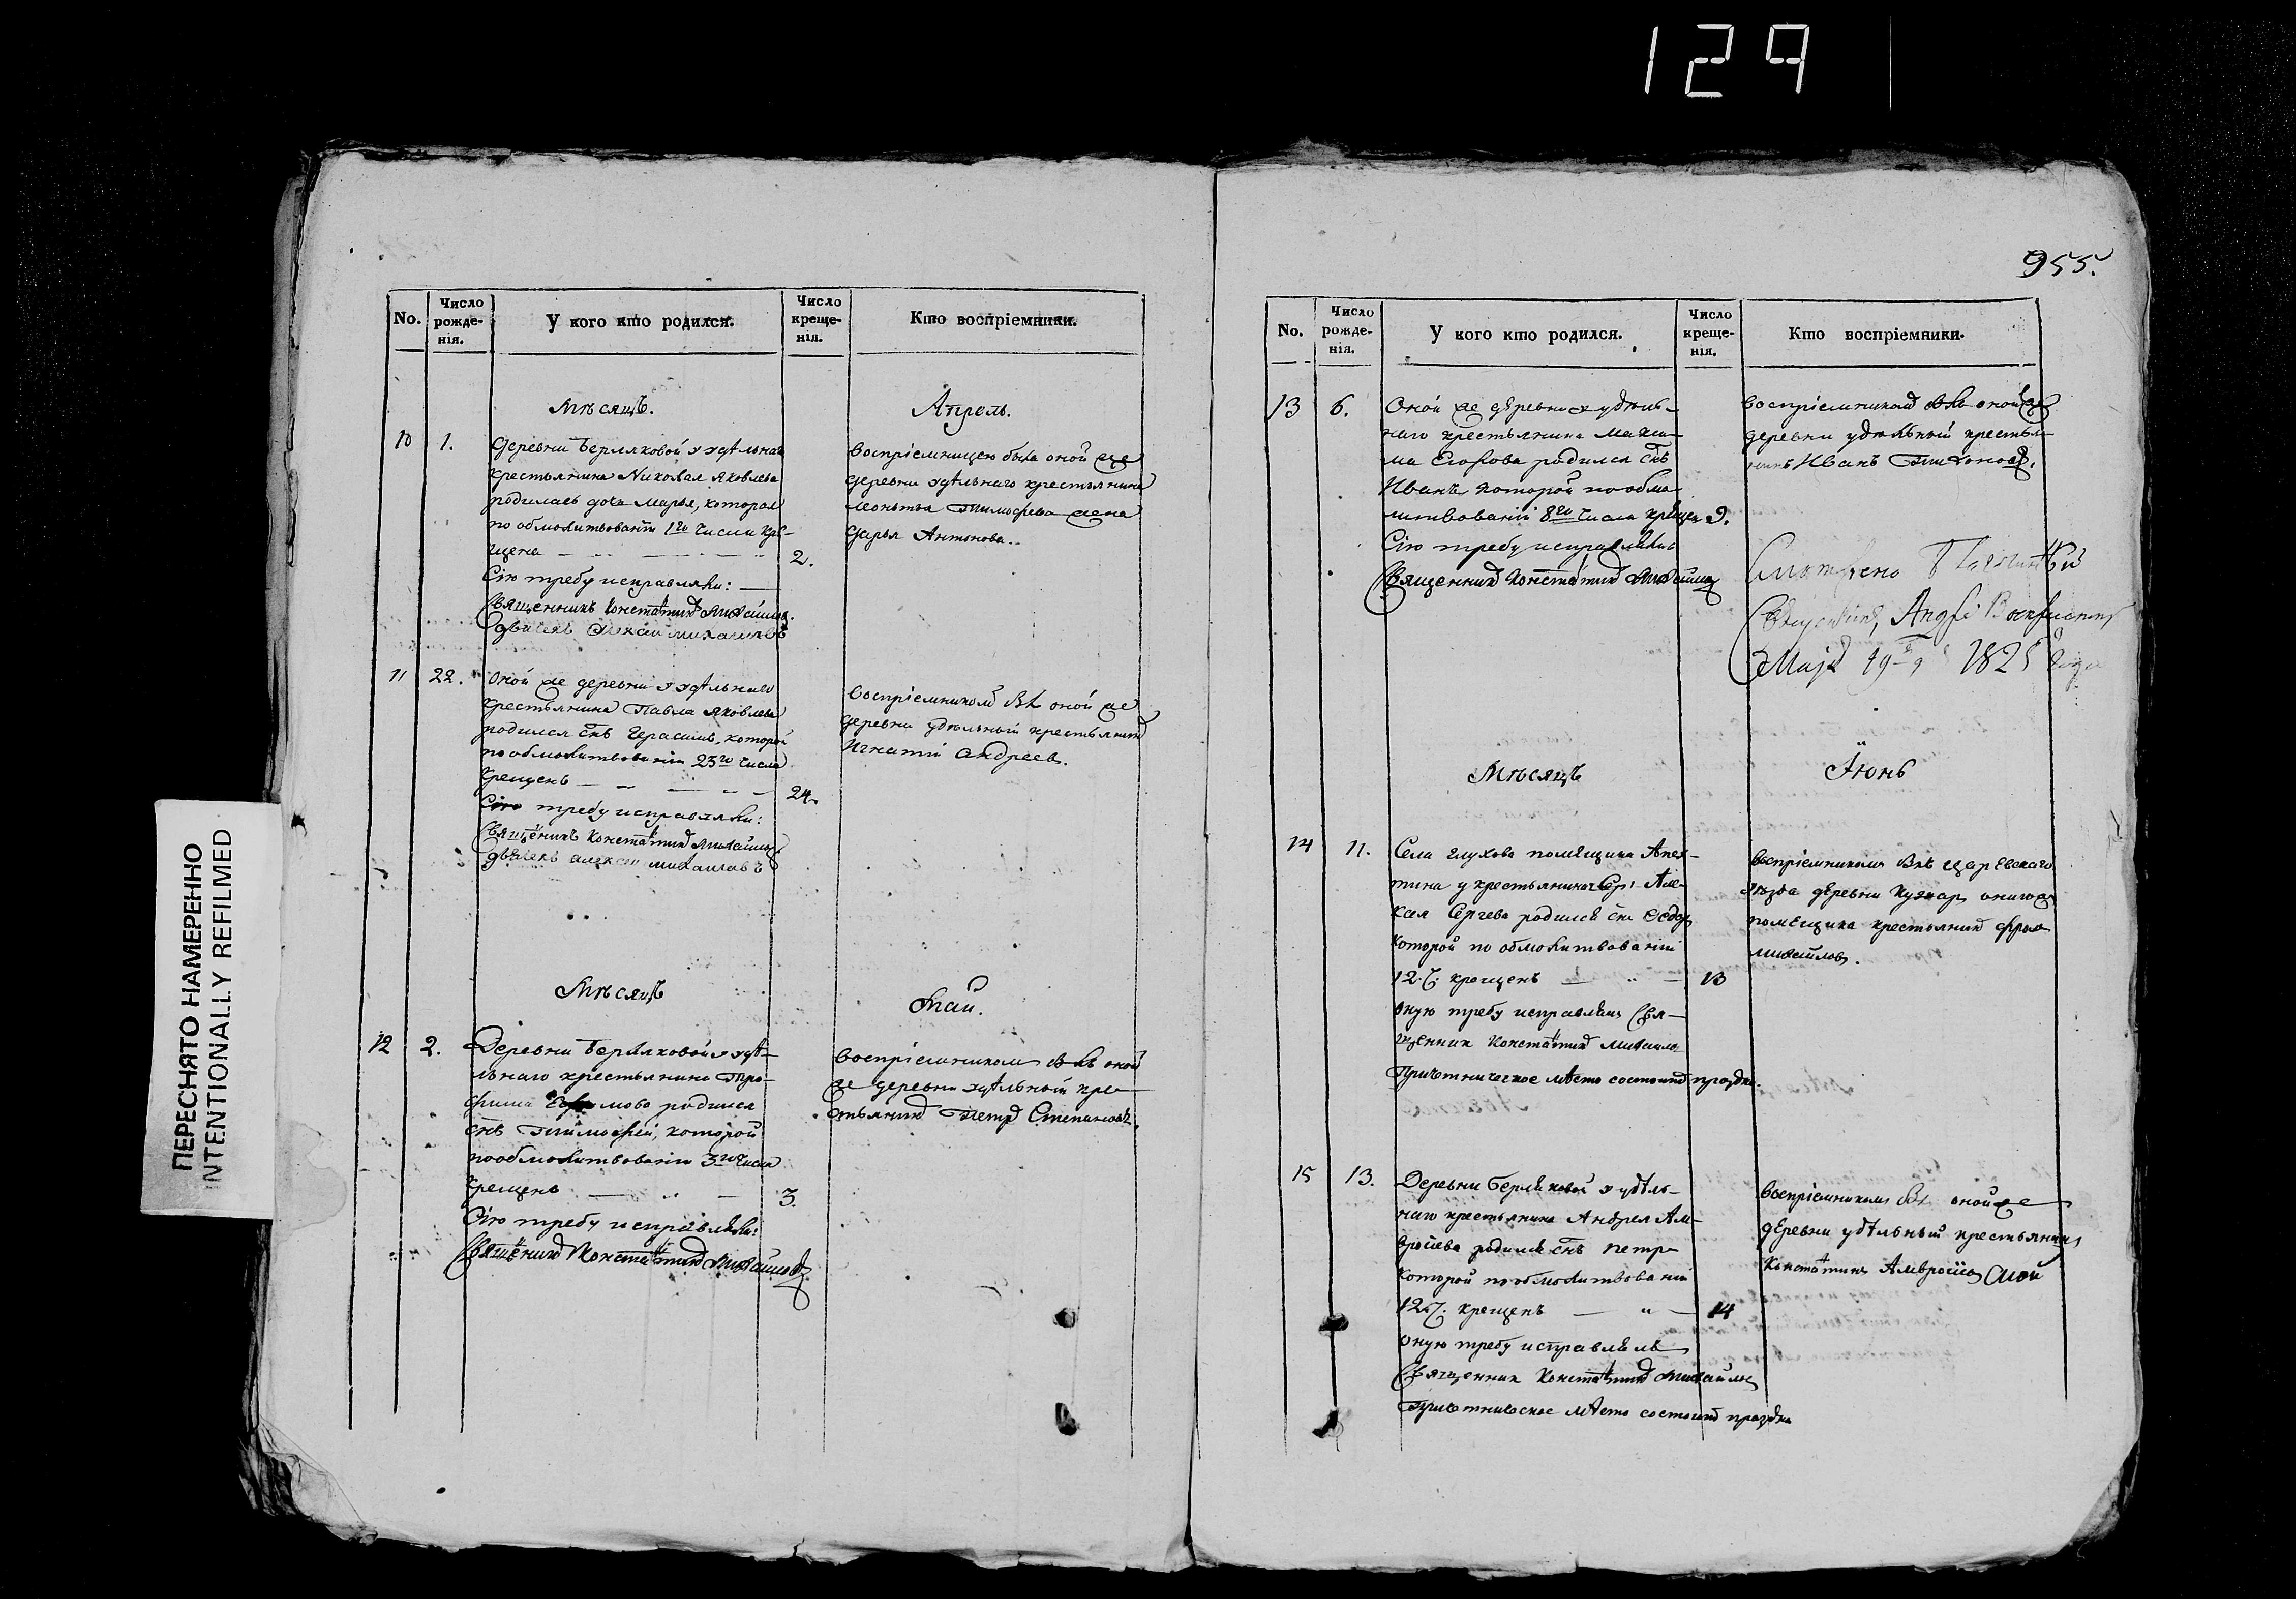 129
955.
ПЕРЕСНЯТО НАМЕРЕННО
INTENTIONALLY REFILMED
No.
Число рожде-нія.
У кого кто родился.
Число креще-нія.
Кто воспріемники.
Мѣсяцъ.
Апрель.
10
1.
Деревни Берляковой у удѣльнаго
крестьянина Николая Яковлева
родилась дочь Марья, которая
по обмолитвованіи 1го числа кре-
щена
2.
Сію требу исправляли:
Священникъ Константинъ Михайловъ
дьячекъ Алексѣй Михайловъ
воспріемницею была оной же
деревни удѣльнаго крестьянина
Леонтья Тимофеева жена
Дарья Антонова.
11
22.
Оной же деревни у удѣльнаго
крестьянина Павла Яковлева
родился снъ Герасимъ, которой
по обмолитвованіи 23го числа
крещенъ
24.
Сію требу исправляли:
Священникъ Константинъ Михайловъ
дьячекъ Алексѣй Михайловъ
воспріемникомъ былъ оной же
деревни удѣльный крестьянинъ
Игнатій Андреев.
Мѣсяцъ
Май.
12
2.
Деревни Берляковой у удѣ-
льнаго крестьянина Тро-
фима родился
снъ Тимофей, которой
по обмолитвованіи 3го числа
крещенъ
3.
Сію требу исправляли:
Священникъ Константинъ Михайловъ
воспріемникомъ былъ оной
же деревни удѣльный кре-
стьянинъ Петръ Степановъ.
No.
Число рожде-нія.
У кого кто родился.
Число креще-нія.
Кто воспріемники.
13
6.
Оной же деревни у удѣль-
наго крестьянина Макси-
ма Егорова родился снъ
Иванъ которой по обмо-
литвованіи 8го числа крещен
9.
Сію требу исправлялъ
Священникъ Константинъ Михайловъ
воспріемникомъ былъ оной же
деревни удѣльный крестья-
нинъ Иванъ Тихоновъ.
1825 года
Мѣсяцъ
Іюнь
14
11.
Села Глухова помѣщика Апех-
тина у крестьянина Але-
ксея Сергева родился снъ Федоръ
которой по обмолитвованіи
12.ч. крещенъ
13
оную требу исправлялъ Свя-
щенник Константинъ Михайловъ
Причетническое мѣсто состоитъ праздно.
воспріемникомъ былъ
уѣзда деревни онагожъ
помѣщика крестьянинъ
Михайлов.
15
13.
Деревни Берляковой у удѣль-
наго крестьянина Андрея Ам-
вросіева родился снъ Петръ
которой по обмолитвованіи
12.ч. крещенъ
14
оную требу исправлялъ
Священник Константинъ Михайловъ
Причетническое мѣсто состоитъ праздно
воспріемникомъ былъ оной же
деревни удѣльный крестьянинъ
Константинъ Амвросіевъ